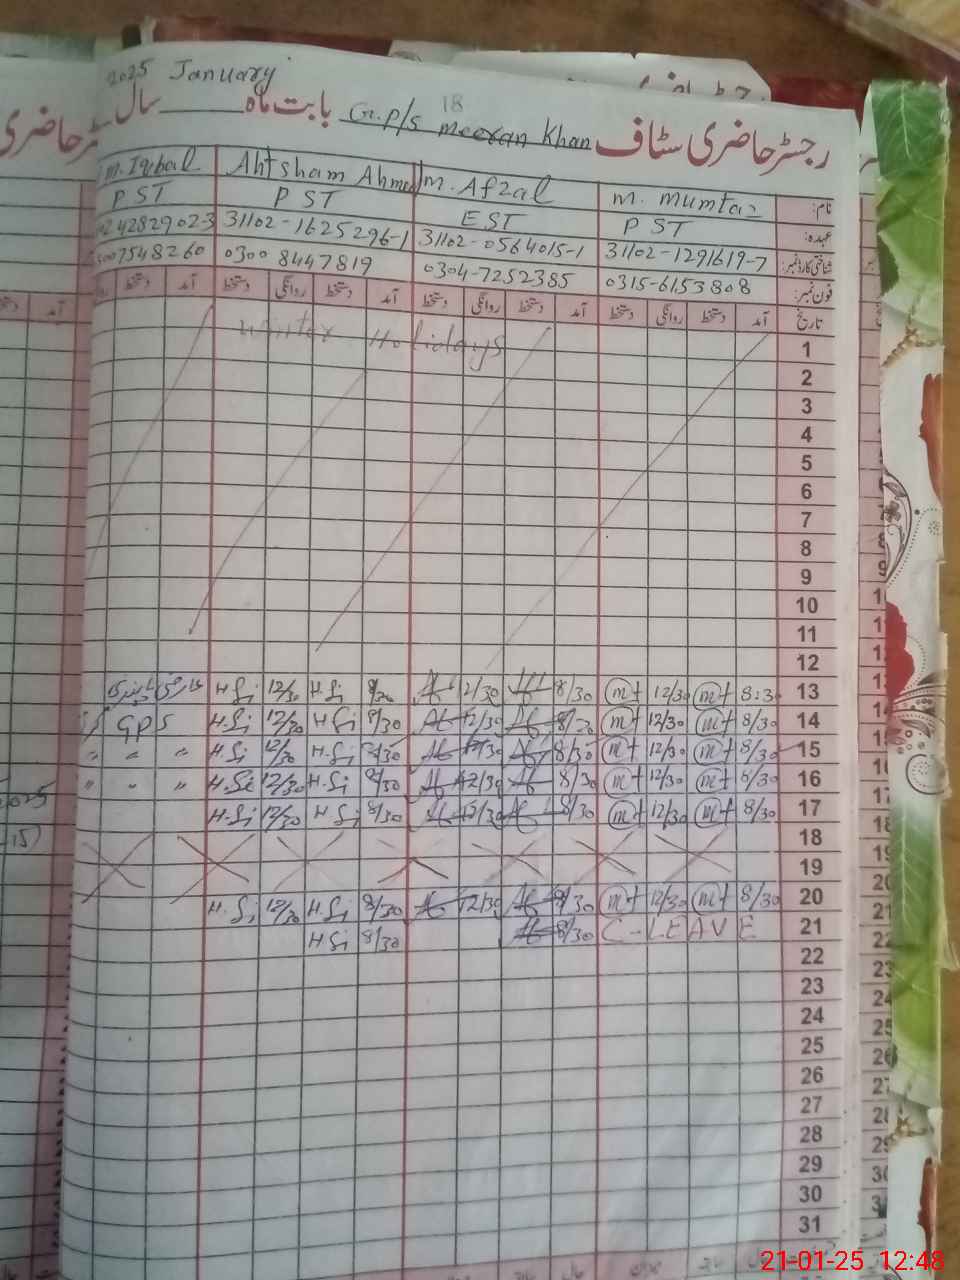 2025 January
رجسٹر حاضری سٹاف G.P/S meeran Khan بابت ماہ سال
18
نام: m. mumtaz M. Afzal Ahtsham Ahmed m. Iqbal
عہدہ: PST EST PST PST
شناختی کارڈ نمبر: 31102-1291619-7 31102-0564015-1 31102-1625296-1 4282902-3
فون نمبر: 0315-6153808 0304-7252385 0300 8447819 7548260
تاریخ آمد دستخط روانگی دستخط آمد دستخط روانگی دستخط آمد دستخط روانگی دستخط آمد دستخط
Winter Holidays
1
2
3
4
5
6
7
8
9
10
11
12
13 8:30 mt 12/30 mt 8/30 Af 12/30 Af 8/30 H.Si 12/30 H.Si عارضی
14 8/30 mt 12/30 mt 8/30 Af 12/30 Af 8/30 H.Si 12/30 H.Si GPS
15 8/30 mt 12/30 mt 8/30 Af 12/30 Af 8/30 H.Si 12/30 H.Si " " "
16 8/30 mt 12/30 mt 8/30 Af 12/30 Af 8/30 H.Si 12/30 H.Si " " "
17 8/30 mt 12/30 mt 8/30 Af 12/30 Af 8/30 H.Si 12/30 H.Si
18
19
20 8/30 mt 12/30 mt 8/30 Af 12/30 Af 8/30 H.Si 12/30 H.Si
21 C-LEAVE 8/30 Af 8/30 H Si
22
23
24
25
26
27
28
29
30
31
21-01-25 12:48